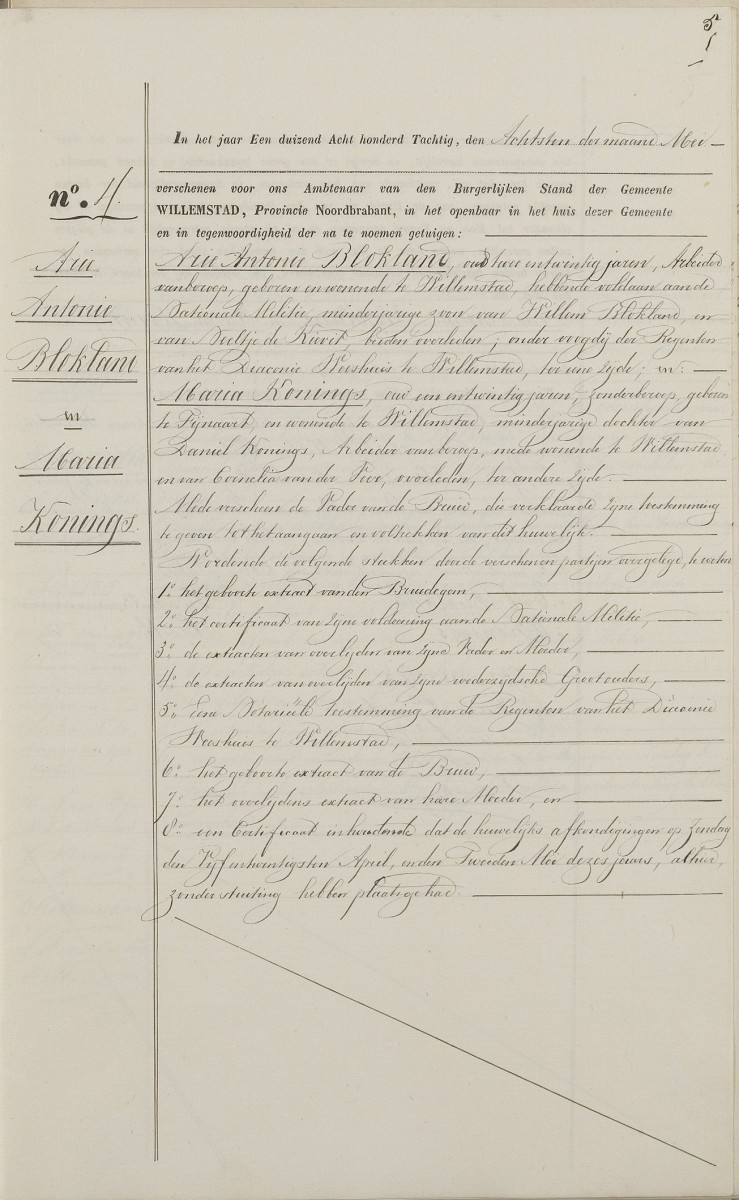 5
In het jaar Een duizend Acht honderd Tachtig, den Achtsten der maand Mei
nº. 4.
verschenen voor ons Ambtenaar van den Burgerlijken Stand der Gemeente
WILLEMSTAD, Provincie Noordbrabant, in het openbaar in het huis dezer Gemeente
en in tegenwoordigheid der na te noemen getuigen:
Arie
Antonie
Blokland
en
Maria
Konings.
Arie Antonie Blokland, oud twee en twintig jaren, Arbeider
van beroep, geboren en wonende te Willemstad, hebbende voldaan aan de
Nationale Militie, minderjarige zoon van Willem Blokland, en
van Neeltje de Kievit, beiden overleden; onder voogdij der Regenten
van het Diaconie Weeshuis te Willemstad, ter eene zijde; en:
Maria Konings, oud een en twintig jaren, zonder beroep, geboren
te Fijnaart, en wonende te Willemstad, minderjarige dochter van
Daniel Konings, Arbeider van beroep, mede wonende te Willemstad
en van Cornelia van der Veer, overleden, ter andere zijde.
Mede verscheen de Vader van de Bruid, die verklaarde zijne toestemming
te geven tot het aangaan en voltrekken van dit huwelijk.
Wordende de volgende stukken door de verschenen partijen overgelegd, te weten
1º. het geboorte extract van den Bruidegom,
2º. het certificaat van zijne voldoening aan de Nationale Militie,
3º. de extracten van overlijden van zijne Vader en Moeder,
4º. de extracten van overlijden van zijne wederzijdsche Grootouders,
5º. Eene Notariëele toestemming van de Regenten van het Diaconie
Weeshuis te Willemstad,
6º. het geboorte extract van de Bruid,
7º. het overlijdens extract van hare Moeder, en
8º. een Certificaat inhoudende dat de huwelijks afkondigingen op Zondag
den Vijf en twintigsten April, en den Tweeden Mei dezes jaars, alhier,
zonder stuiting hebben plaats gehad.